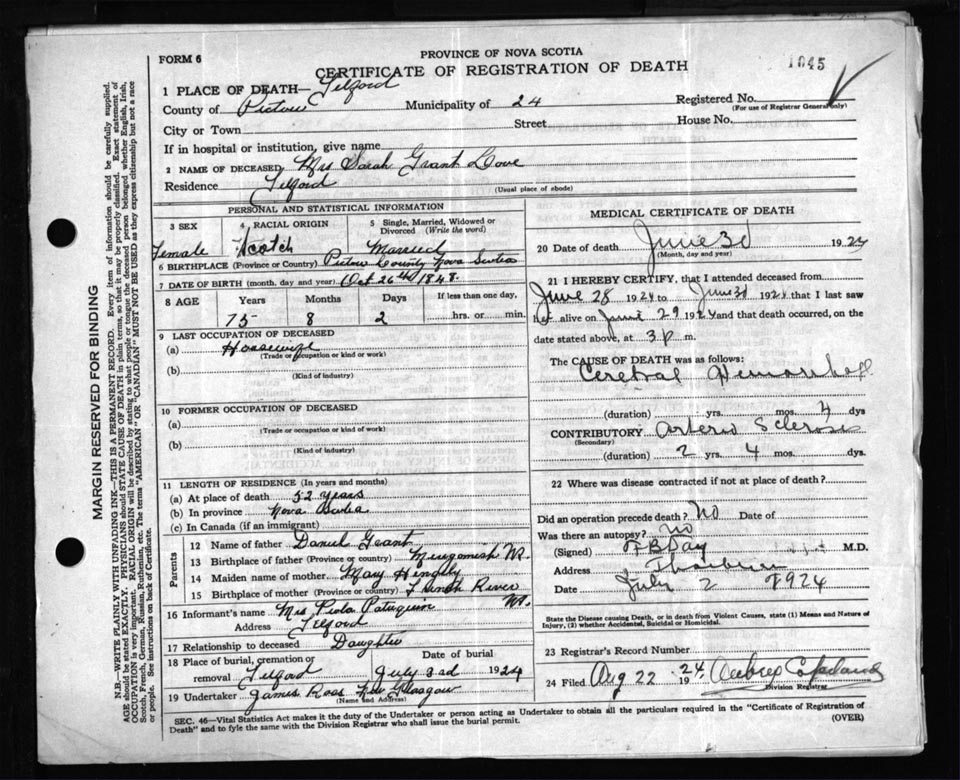 FORM 6
PROVINCE OF NOVA SCOTIA
CERTIFICATE OF REGISTRATION OF DEATH
1045
1 PLACE OF DEATH— Telford
County of Pictou Municipality of 24 Registered No.
(For use of Registrar General only)
City or Town Street House No.
If in hospital or institution, give name
2 NAME OF DECEASED Mrs Sarah Grant Love
Residence Telford
(Usual place of abode)
PERSONAL AND STATISTICAL INFORMATION
3 SEX 4 RACIAL ORIGIN 5 Single, Married, Widowed or Divorced (Write the word)
Female Scotch Married
6 BIRTHPLACE (Province or Country) Pictou County Nova Scotia
7 DATE OF BIRTH (month, day and year) Oct 26th 1848.
8 AGE Years Months Days If less than one day,
75 8 2 hrs. or min.
9 LAST OCCUPATION OF DECEASED
(a) Housewife
(Trade or occupation or kind or work)
(b)
(Kind of industry)
10 FORMER OCCUPATION OF DECEASED
(a)
(Trade or occupation or kind or work)
(b)
(Kind of industry)
11 LENGTH OF RESIDENCE (In years and months)
(a) At place of death 52 years
(b) In province Nova Scotia
(c) In Canada (if an immigrant)
Parents
12 Name of father Daniel Grant
13 Birthplace of father (Province or country) Merigomish NS.
14 Maiden name of mother Mary
15 Birthplace of mother (Province or country) French River NS.
16 Informant's name Mrs
Address Telford
17 Relationship to deceased Daughter
18 Place of burial, cremation or removal Date of burial
Telford July 3rd 1924
19 Undertaker James Ross New Glasgow
(Name and Address)
MEDICAL CERTIFICATE OF DEATH
20 Date of death June 30 1924
(Month, day and year)
21 I HEREBY CERTIFY, that I attended deceased from
June 28 1924 to June 30 1924 that I last saw
her alive on June 29 1924 and that death occurred, on the
date stated above, at 3 p m.
The CAUSE OF DEATH was as follows:
Cerebral Hemorrhage
(duration) yrs. mos. 4 dys
CONTRIBUTORY Arterio Sclerosis
(Secondary)
(duration) 2 yrs. 4 mos. dys.
22 Where was disease contracted if not at place of death?
Did an operation precede death? No Date of
Was there an autopsy? No
(Signed) F B Day M.D.
Address Thorburn
Date July 2 1924
State the Disease causing Death, or in death from Violent Causes, state (1) Means and Nature of
Injury, (2) whether Accidental, Suicidal or Homicidal.
23 Registrar's Record Number
24 Filed Aug 22 1924 Aubrey Copeland
Division Registrar
SEC. 46—Vital Statistics Act makes it the duty of the Undertaker or person acting as Undertaker to obtain all the particulars required in the "Certificate of Registration of
Death" and to fyle the same with the Division Registrar who shall issue the burial permit.
(OVER)
MARGIN RESERVED FOR BINDING
N.B.—WRITE PLAINLY WITH UNFADING INK—THIS IS A PERMANENT RECORD. Every item of information should be carefully supplied.
AGE should be stated EXACTLY. PHYSICIANS should STATE CAUSE OF DEATH in plain terms, so that it may be properly classified. Exact statement of
OCCUPATION is very important. RACIAL ORIGIN will be described by stating to what people or tongue the deceased person belonged whether English, Irish,
Scotch, French, German, Russian, Ruthenian, etc. The terms "AMERICAN" OR "CANADIAN" MUST NOT BE USED as they express citizenship but not a race
or people. See instructions on back of Certificate.